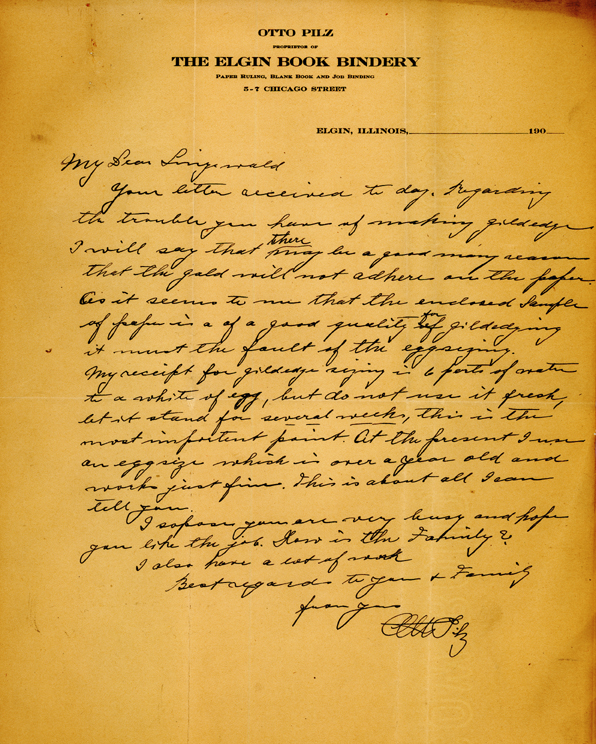 OTTO PILZ
PROPRIETOR OF
THE ELGIN BOOK BINDERY
PAPER RULING, BLANK BOOK AND JOB BINDING
5-7 CHICAGO STREET
ELGIN, ILLINOIS, 190
My Dear Lingewald
Your letter received to day. Regarding
the trouble you have of making gildedge
I will say that there may be a good many reason
that the gold will not adhere on the paper.
As it seems to me that the enclosed Sample
of paper is a of a good quality for gildedging
it must the fault of the eggsizing.
My receipt for gildedge sizing is 6 parts of water
to a white of egg, but do not use it fresh,
let it stand for several weeks, this is the
most importent point. At the present I use
an eggsize which is over a year old and
works just fine. This is about all I can
tell you.
I sopose you are very busy and hope
you like the job. How is the Family?
I also have a lot of work
Best regards to you & Family
from yours
Otto Pilz